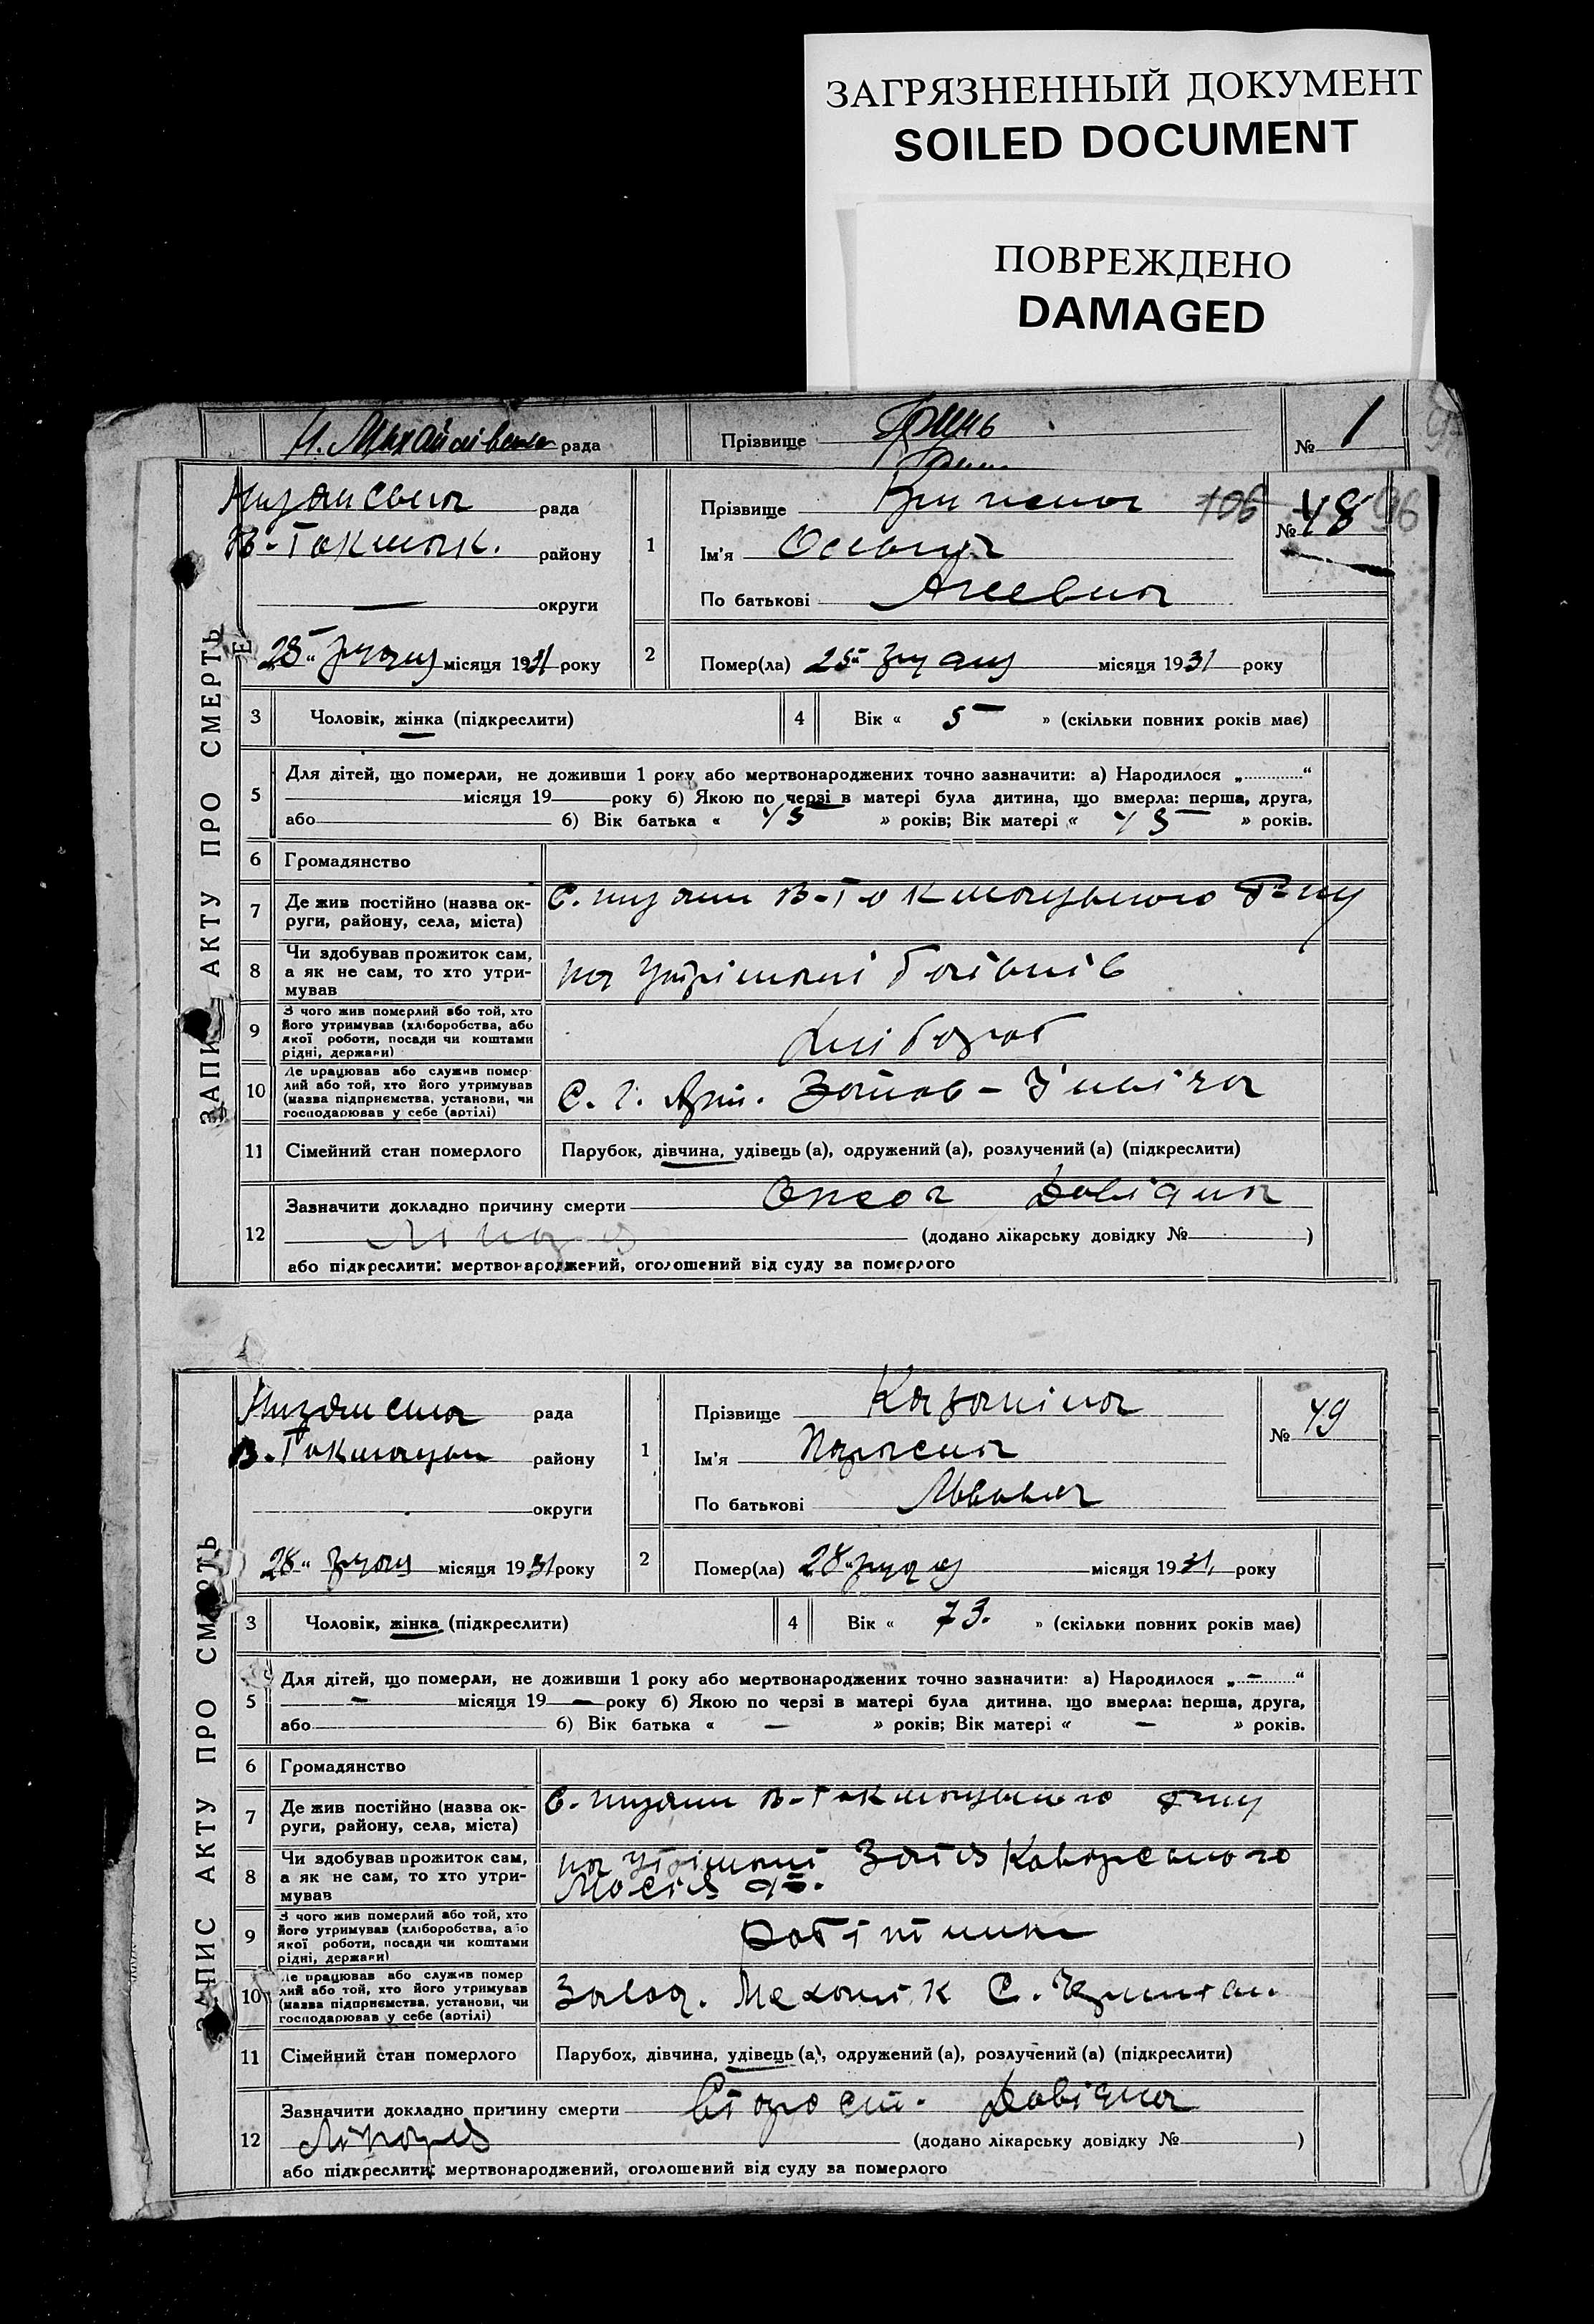 ЗАГРЯЗНЕННЫЙ ДОКУМЕНТ
SOILED DOCUMENT
ПОВРЕЖДЕНО
DAMAGED
Н. Михайлівська рада
Прізвище Гринь
№ 1
ЗАПИС АКТУ ПРО СМЕРТЬ
рада
В-Токмак. району
— округи
28 “ грудня місяця 1931 року
1
Прізвище
106
№ 48
96
Ім'я
По батькові
2
Помер(ла) 25 “ грудня місяця 1931 року
3
Чоловік, жінка (підкреслити)
4
Вік « 5 » (скільки повних років має)
5
Для дітей, що померли, не доживши 1 року або мертвонароджених точно зазначити: а) Народилося „ “
місяця 19 року б) Якою по черзі в матері була дитина, що вмерла: перша, друга,
або б) Вік батька « 45 » років; Вік матері « 45 » років.
6
Громадянство
7
Де жив постійно (назва ок-
руги, району, села, міста)
В-Токмацького р-ну
8
Чи здобував прожиток сам,
а як не сам, то хто утри-
мував
на утріманні батьків
9
З чого жив померлий або той, хто
його утримував (хліборобства, або
якої роботи, посади чи коштами
рідні, держави)
хлібороб
10
Де працював або служив помер-
лий або той, хто його утримував
(назва підприємства, установи, чи
господарював у себе (артілі)
С. Г. Арт.
11
Сімейний стан померлого
Парубок, дівчина, удівець (а), одружений (а), розлучений (а) (підкреслити)
12
Зазначити докладно причину смерти Довідка
лікаря
(додано лікарську довідку № )
або підкреслити: мертвонароджений, оголошений від суду за померлого
ЗАПИС АКТУ ПРО СМЕРТЬ
рада
В-Токмацьк району
округи
28 “ грудня місяця 1931 року
1
Прізвище
№ 49
Ім'я Параска
По батькові Львовна
2
Помер(ла) 28 “ грудня місяця 1931 року
3
Чоловік, жінка (підкреслити)
4
Вік « 73. » (скільки повних років має)
5
Для дітей, що померли, не доживши 1 року або мертвонароджених точно зазначити: а) Народилося „ — “
— місяця 19 — року б) Якою по черзі в матері була дитина, що вмерла: перша, друга,
або б) Вік батька « — » років; Вік матері « — » років.
6
Громадянство
7
Де жив постійно (назва ок-
руги, району, села, міста)
В-Токмацького р-ну
8
Чи здобував прожиток сам,
а як не сам, то хто утри-
мував
на утріманні Зятя
9
З чого жив померлий або той, хто
його утримував (хліборобства, або
якої роботи, посади чи коштами
рідні, держави)
робітник
10
Де працював або служив помер
лий або той, хто його утримував
(назва підприємства, установи, чи
господарював у себе (артілі)
Завод.
11
Сімейний стан померлого
Парубок, дівчина, удівець (а), одружений (а), розлучений (а) (підкреслити)
12
Зазначити докладно причину смерти Старост. Довідка
лікаря
(додано лікарську довідку № )
або підкреслити: мертвонароджений, оголошений від суду за померлого